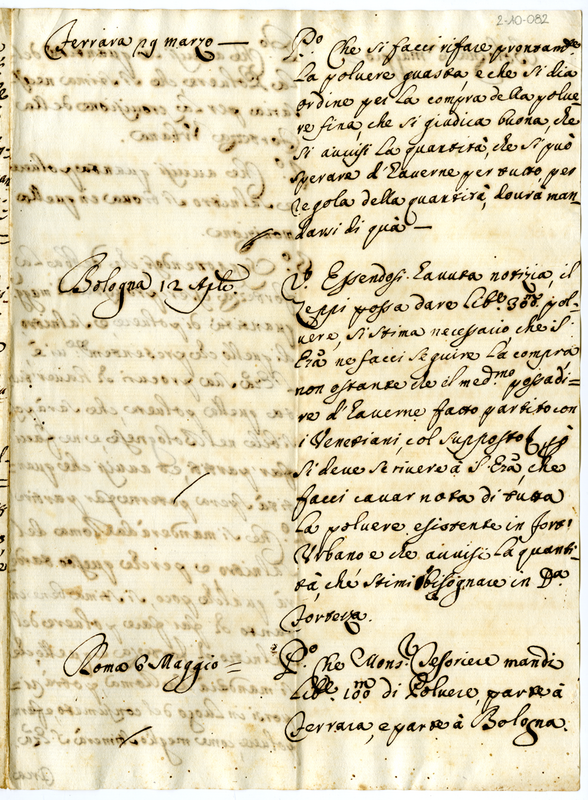 2-10-082
Ferrara 29 marzo —
P.o Che si facci rifare prontam.te
la polvere guasta, e che si dia
ordine per la compra della polve
re fina, che si giudica buona, che
si auuisi la quantità, che si può
sperare d'hauerne per tutto, per
regola della quantità, dourà man_
darsi di quà —
Bologna 12 Aple.
P.o Essendosi hauuta notizia, il
Zeppi possa dare lib.e 30m. pol-
uere, si stima necessario che S.
Em.a ne facci seguire la compra
non ostante che el med.mo possa di=
re d'hauerne fatto partito con
i Venetiani, col supposto
Si deue scriuere à S. Em.a, che
facci cauar nota di tutta
la poluere esistente in forte
Urbano e che auuisi la quanti-
tà, che stimi bisognare in D.a
fortezza.
Roma 6 Maggio =
P.o Che Mons.r Tesoriere mandi
lib.e 100m di Poluere, parte à
Ferrara, e parte à Bologna.